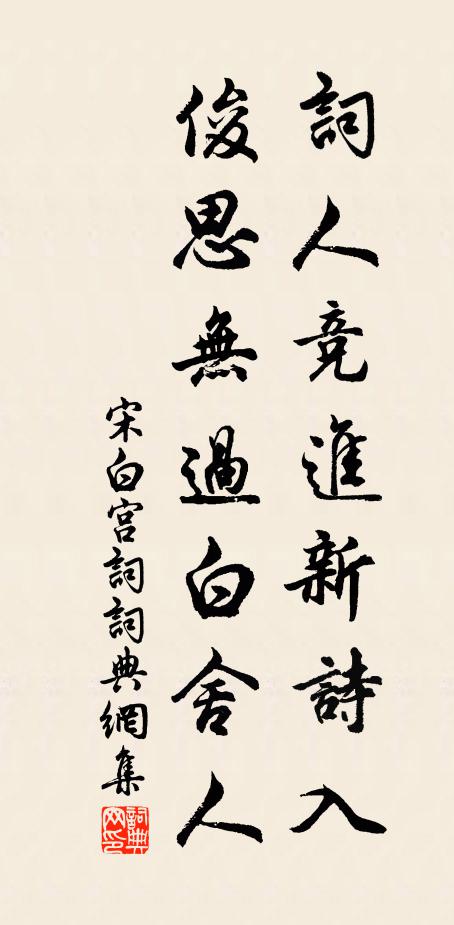 詞人竞進新詩入
俊思無過白舍人
宋白宫詞詞典網集
詞典网印